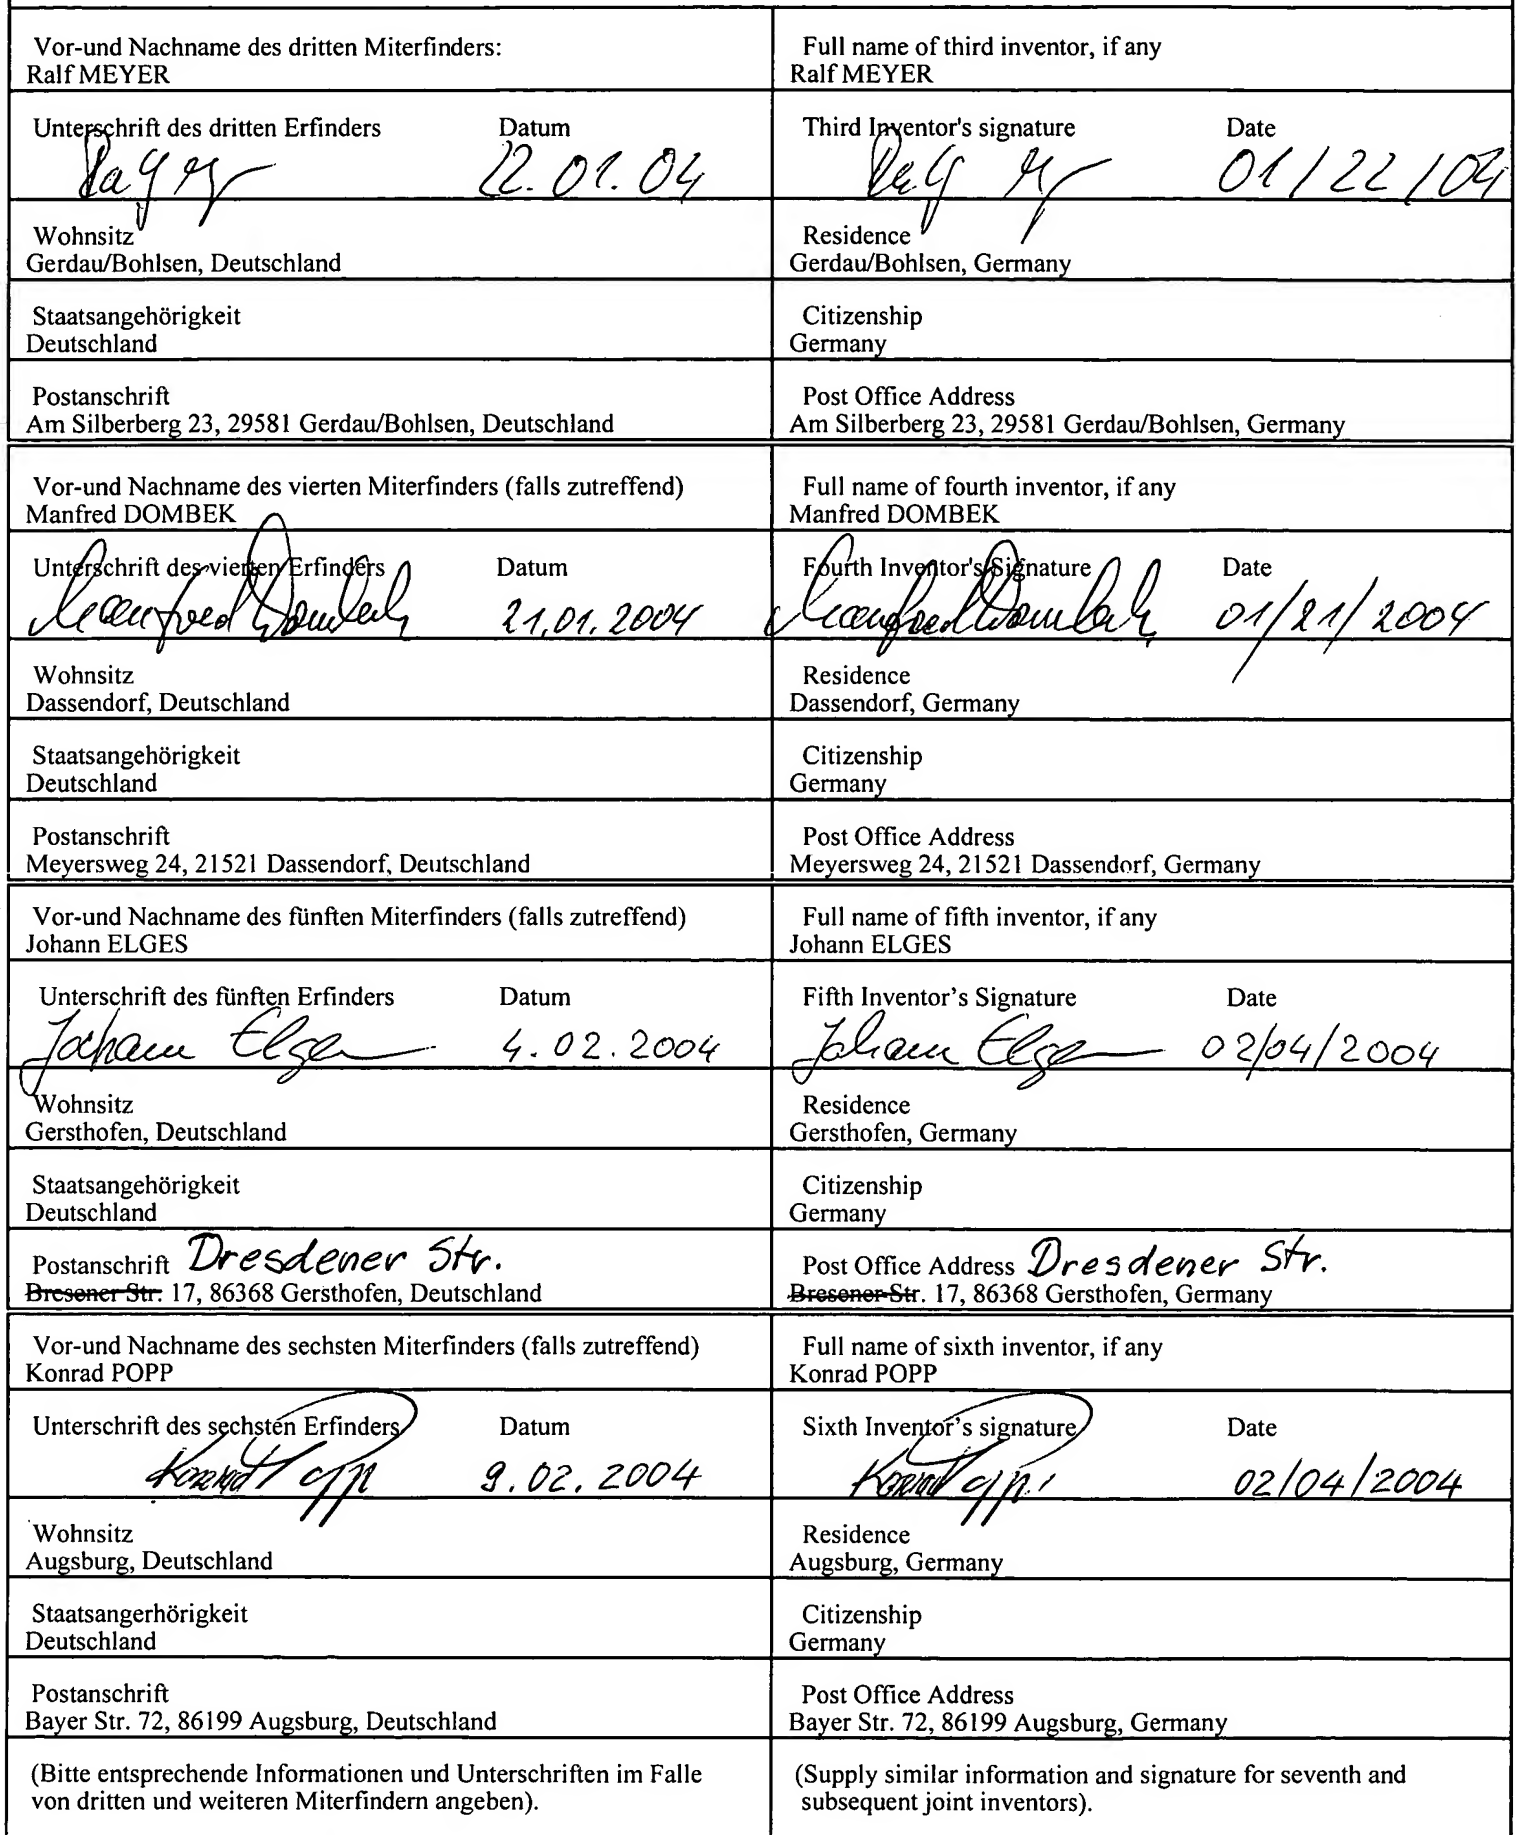 Vor-und Nachname des dritten Miterfinders:
Ralf MEYER
Full name of third inventor, if any
Ralf MEYER
Unterschrift des dritten Erfinders Datum
22.01.04
Third Inventor's signature Date
01/22/04
Wohnsitz
Gerdau/Bohlsen, Deutschland
Residence
Gerdau/Bohlsen, Germany
Staatsangehörigkeit
Deutschland
Citizenship
Germany
Postanschrift
Am Silberberg 23, 29581 Gerdau/Bohlsen, Deutschland
Post Office Address
Am Silberberg 23, 29581 Gerdau/Bohlsen, Germany
Vor-und Nachname des vierten Miterfinders (falls zutreffend)
Manfred DOMBEK
Full name of fourth inventor, if any
Manfred DOMBEK
Unterschrift des vierten Erfinders Datum
Manfred Dombek 21.01.2004
Fourth Inventor's Signature Date
Manfred Dombek 01/21/2004
Wohnsitz
Dassendorf, Deutschland
Residence
Dassendorf, Germany
Staatsangehörigkeit
Deutschland
Citizenship
Germany
Postanschrift
Meyersweg 24, 21521 Dassendorf, Deutschland
Post Office Address
Meyersweg 24, 21521 Dassendorf, Germany
Vor-und Nachname des fünften Miterfinders (falls zutreffend)
Johann ELGES
Full name of fifth inventor, if any
Johann ELGES
Unterschrift des fünften Erfinders Datum
Johann Elges 4.02.2004
Fifth Inventor's Signature Date
Johann Elges 02/04/2004
Wohnsitz
Gersthofen, Deutschland
Residence
Gersthofen, Germany
Staatsangehörigkeit
Deutschland
Citizenship
Germany
Postanschrift Dresdener Str.
Bresener Str. 17, 86368 Gersthofen, Deutschland
Post Office Address Dresdener Str.
Bresener Str. 17, 86368 Gersthofen, Germany
Vor-und Nachname des sechsten Miterfinders (falls zutreffend)
Konrad POPP
Full name of sixth inventor, if any
Konrad POPP
Unterschrift des sechsten Erfinders Datum
Konrad Popp 9.02.2004
Sixth Inventor's signature Date
Konrad Popp 02/04/2004
Wohnsitz
Augsburg, Deutschland
Residence
Augsburg, Germany
Staatsangerhörigkeit
Deutschland
Citizenship
Germany
Postanschrift
Bayer Str. 72, 86199 Augsburg, Deutschland
Post Office Address
Bayer Str. 72, 86199 Augsburg, Germany
(Bitte entsprechende Informationen und Unterschriften im Falle
von dritten und weiteren Miterfindern angeben).
(Supply similar information and signature for seventh and
subsequent joint inventors).